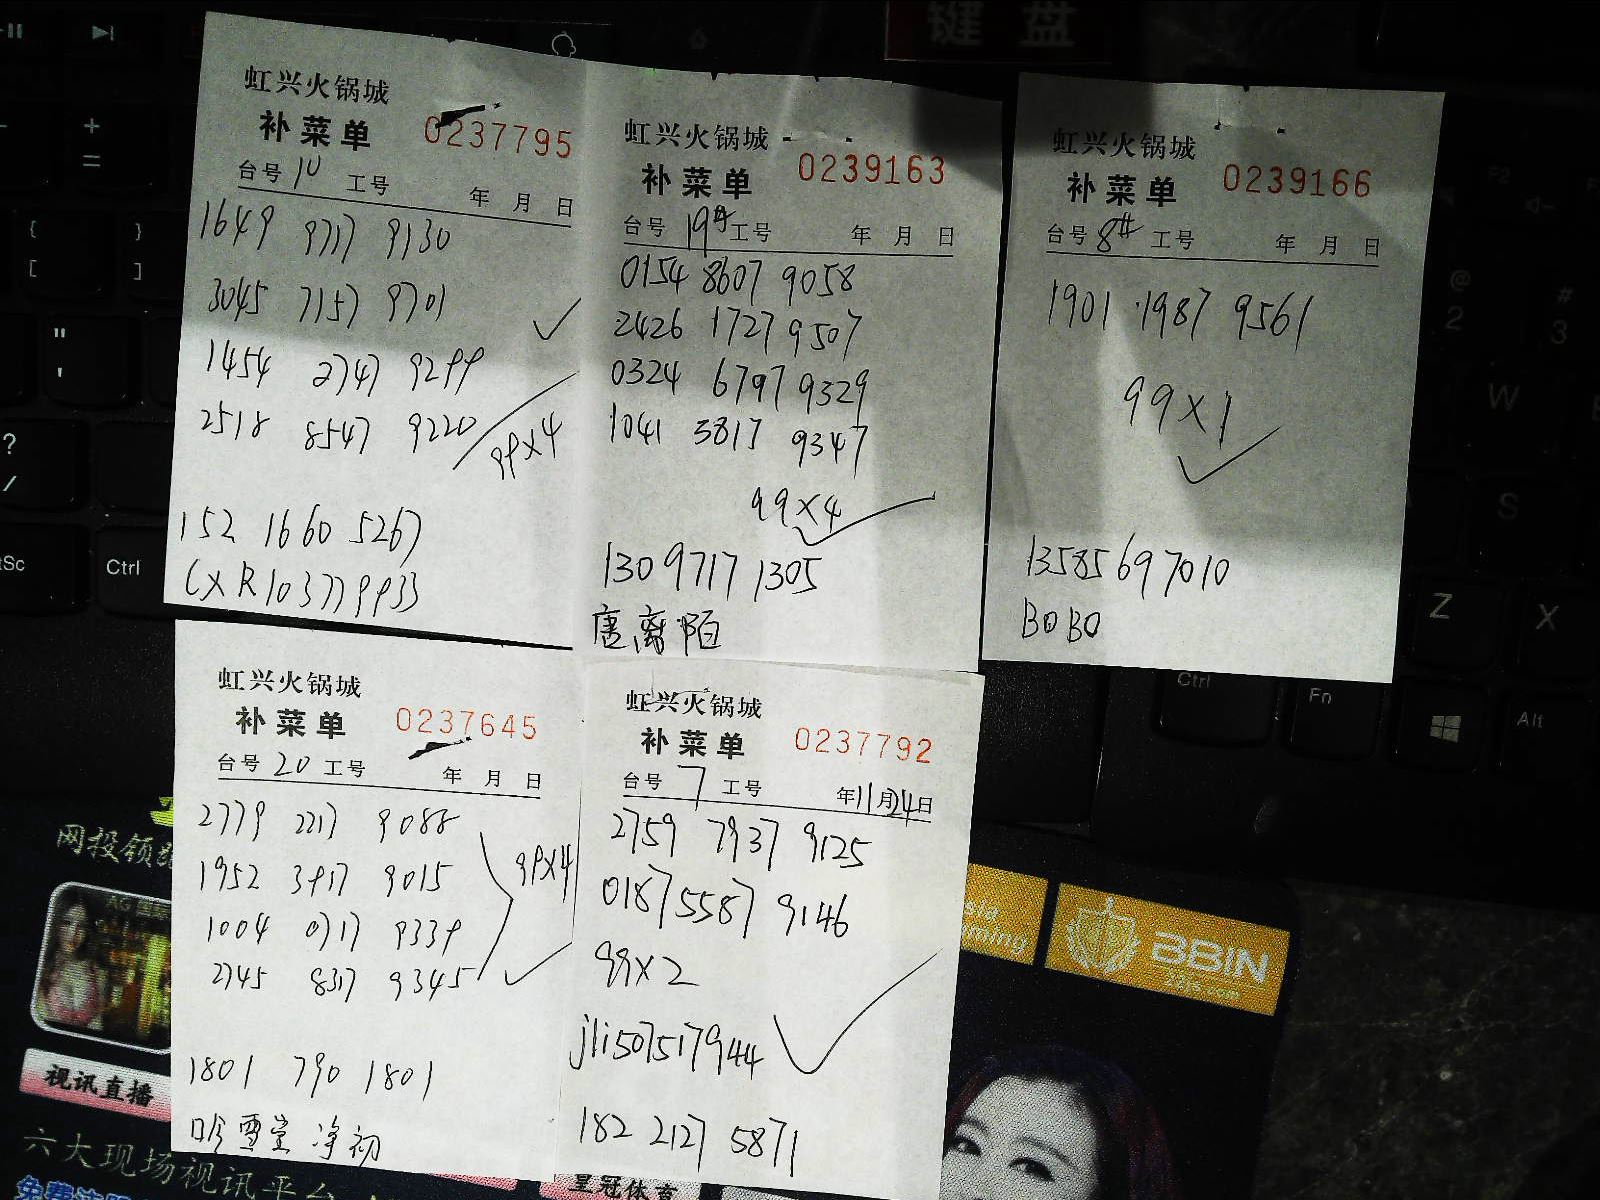 键盘
虹兴火锅城
补菜单 0237795
台号 10 工号 年 月 日
1649 9717 9130
3045 7157 9701
1454 2747 9299
2518 8547 9220
99X4
152 1660 5267
CXR103779933
虹兴火锅城
补菜单 0239163
台号 19# 工号 年 月 日
0154 8607 9058
2426 1727 9507
0324 6797 9329
1041 3817 9347
99X4
130 9717 1305
唐离陌
虹兴火锅城
补菜单 0239166
台号 8# 工号 年 月 日
1901 1987 9561
99X1
13585697010
BOBO
虹兴火锅城
补菜单 0237645
台号 20 工号 年 月 日
2779 2217 9088
1952 3917 9015
1004 0717 9339
2745 8317 9345
99X4
1801 790 1801
吟雪堂 净初
虹兴火锅城
补菜单 0237792
台号 7 工号 年11月24日
2759 7937 9125
0187 5587 9146
99X2
jli507517944
182 2127 5871
网投领
视讯直播
六大现场视讯平台
BBIN
皇冠体育
Ctrl
Ctrl
Fn
Alt
Z
X
S
W